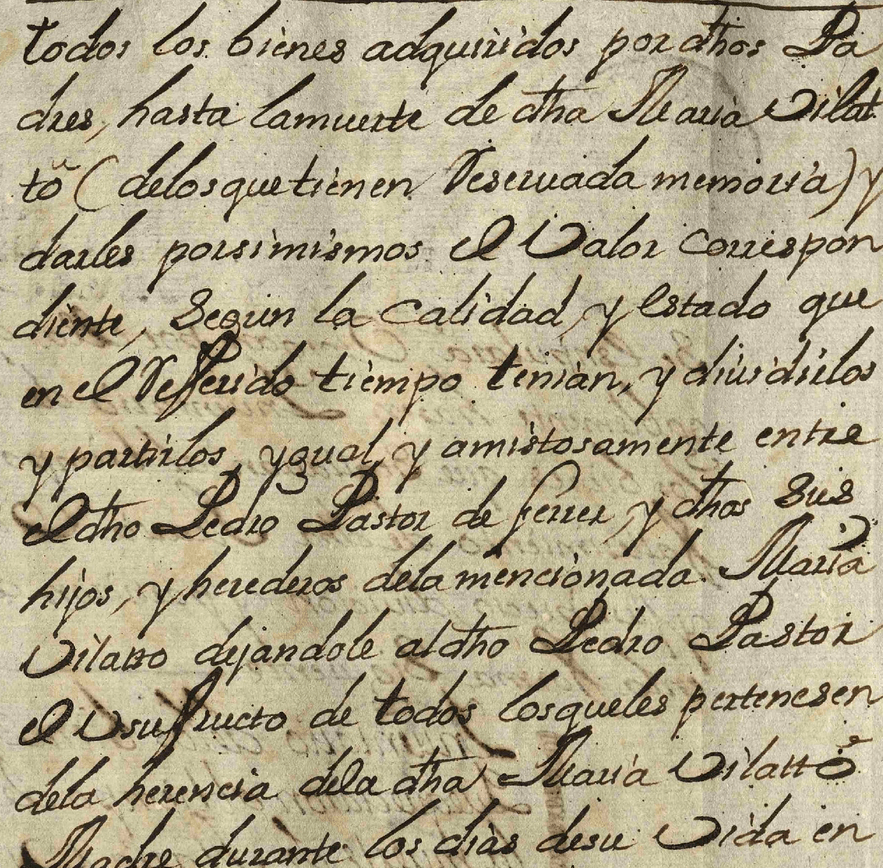 todos los bienes adquiridos por dhos Pa
dres, hasta lamuerte de dha Maria Vilat
tó (delosquetienen Reservada memoria) y
darles porsimismos el Valor Correspon
diente, Segun la Calidad, y Estado que
en el Refferido tiempo tenian, y dividirlos
y partirlos, ygual, y amistosamente entre
eldho Pedro Pastor de ferrer, y dhos Sus
hijos, y herederos dela mencionada Maria
Vilatto dejandole aldho Pedro Pastor
el Usuffructo de todos losqueles pertenesen
dela herencia dela dha Maria Vilattó
Madre durante los dias desu Vida en